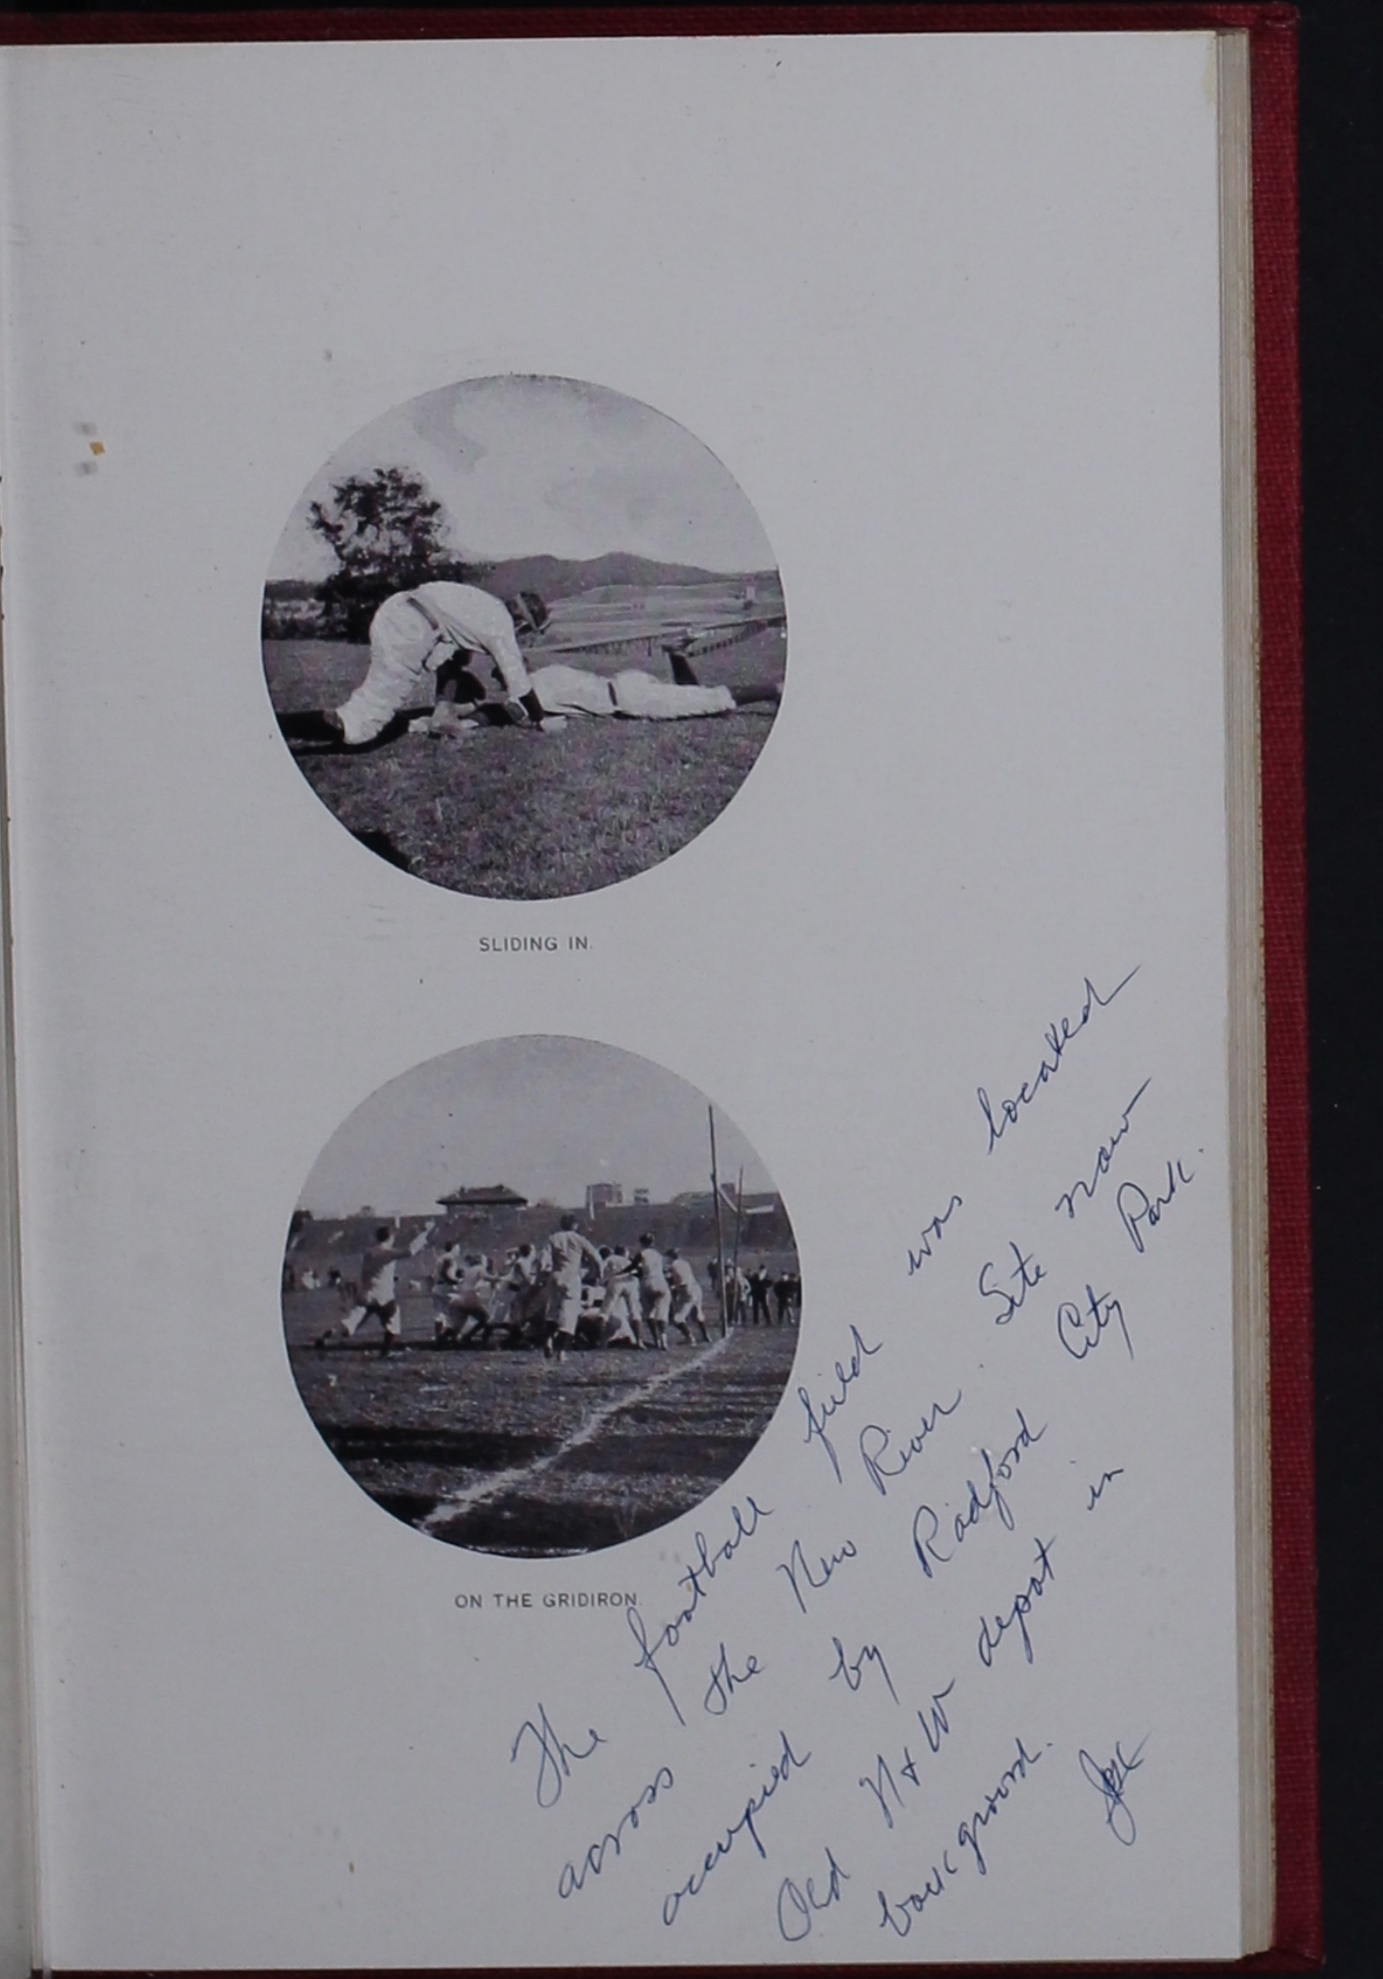 SLIDING IN.
ON THE GRIDIRON.
The football field was located
across the New River. Site now
occupied by Radford City Park.
Old N & W depot in
background.